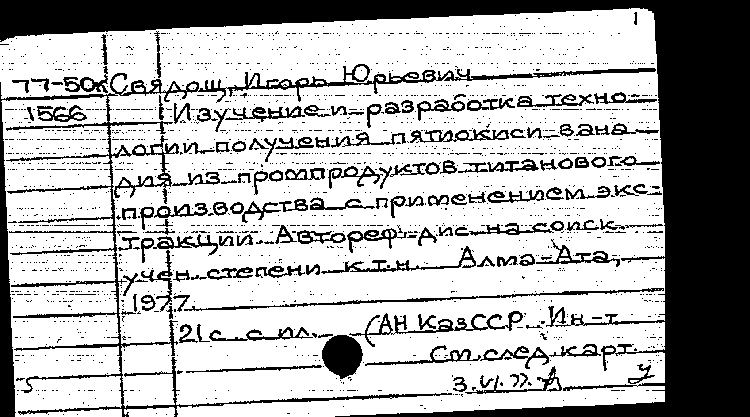 1
77-50к Свядощ, Игорь Юрьевич
1566 Изучение и разработка техно-
логии получения пятиокиси вана-
дия из промпродуктов титанового
производства с применением экс-
тракции. Автореф. дис. на соиск.
учен. степени к.т.н. Алма-Ата,
1977.
21 с. с ил. (АН КазССР. Ин-т
См. след. карт.
5 3.VI.77.